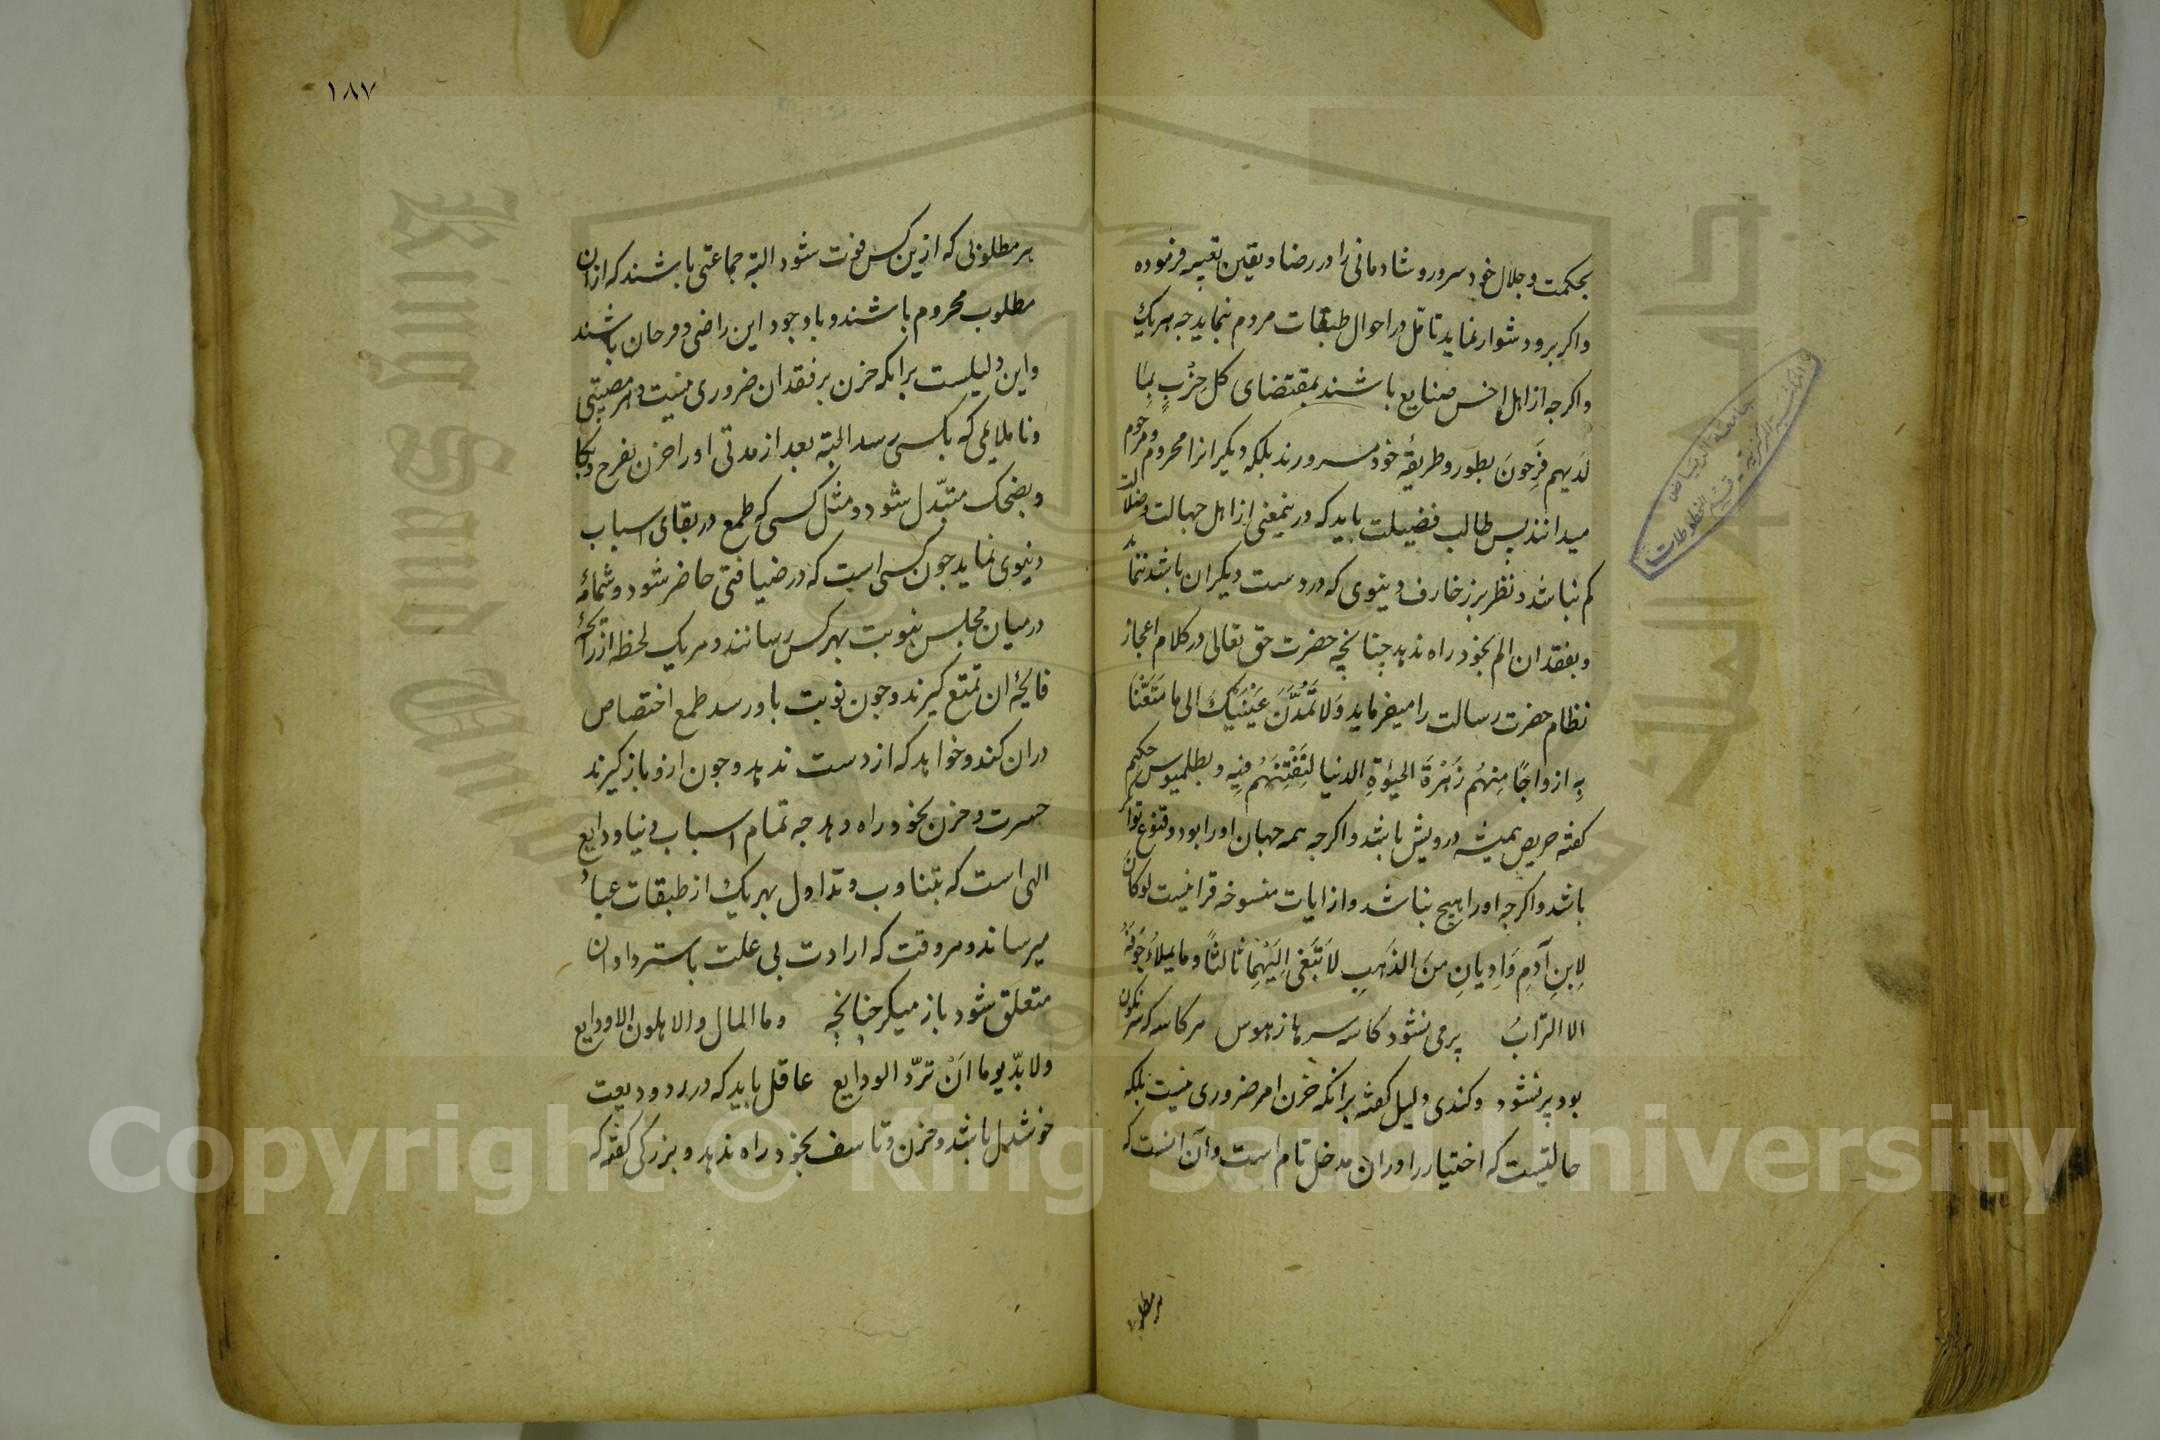 بحکمت و جلال خود سرور و شادمانی را در رضا و یقین تعبیه فرموده
و اکر برو دشوار نماید تامّل در احوال طبقات مردم نماید جه هریک
و اکرجه از اهل اخس صنایع باشند بمقتضای کل حِزْبٍ بِمَا
لَدَیهم فَرِحونَ بطور و طریقهٔ خود مسرورند بلکه دیکرانرا محروم و مرحوم
میدانند پس طالب فضیلت باید که درینمعنی از اهل جهالت و ضلالت
کم نباشد و نظر بر زخارف دنیوی که در دست دیکران باشد ننماید
و بفقدان الم بخود راه ندهد جنانجه حضرت حق تعالی در کلام اعجاز
نظام حضرت رسالت را میفرماید وَلا تَمُدَّنَّ عَیْنَیْکَ الی ما مَتَّعْنا
بِهِ ازواجًا مِنهُم زَهْرَةَ الحیٰوةِ الدنیا لِنَفْتِنَهُمْ فِیهِ و بطلمیوس حکیم
کفته حریص همیشه درویش باشد و اکرجه همه جهان اورا بود و قنوع توانکر
باشد و اکرجه اورا هیج نباشد و از ایات منسوخه قرانیست لوکان
لِابنِ آدم وَادِیانِ مِنَ الذَهبِ لَابتَغی اِلَیْهِمَا ثالثًا و ما یملاءُ جَوفَهُ
الا الترابُ پر می نشود کاسه سرها ز هوس هر کاسه که سرنکون
بود پر نشود و کندی دلیل کفته برانکه حزن امر ضروری نیست بلکه
حالتیست که اختیار را دران مدخل تام است و آن انست که
هر مطلو
١٨٧
هر مطلوبی که ازین کس فوت شود البته جماعتی باشند که ازان
مطلوب محروم باشند و با وجود این راضی و فرحان باشند
و این دلیلست برانکه حزن بر فقدان ضروری نیست و هر مصیبتی
و ناملایمی که بکسی رسد البته بعد از مدتی اورا حزن بفرح و بکا
و بضحک متبدّل شود و مثل کسی که طمع در بقای اسباب
دنیوی نماید جون کسی است که در ضیافتی حاضر شود و شمامهٔ
در میان مجلس بنوبت بهر کس رسانند و هر یک لحظه از رائحهٔ
فایحهٔ ان تمتع کیرند و جون نوبت باو رسد طمع اختصاص
دران کند و خواهد که از دست ندهد و جون ازو باز کیرند
حسرت و حزن بخود راه دهد جه تمام اسباب دنیا ودایع
الهی است که بتناوب و تداول بهر یک از طبقات عباد
میرساند و هر وقت که ارادت بی علت باسترداد ان
متعلق شود باز میکیرد جنانجه وما المال والاهلون الا ودایع
ولا بدّ یوما انْ تردّ الودایع عاقل باید که در رد ودیعت
خوشدل باشد و حزن و تاسف بخود راه ندهد و بزرکی کفته که
جامعة الریاض
قسم المخطوطات
King Saud University
Copyright © King Saud University